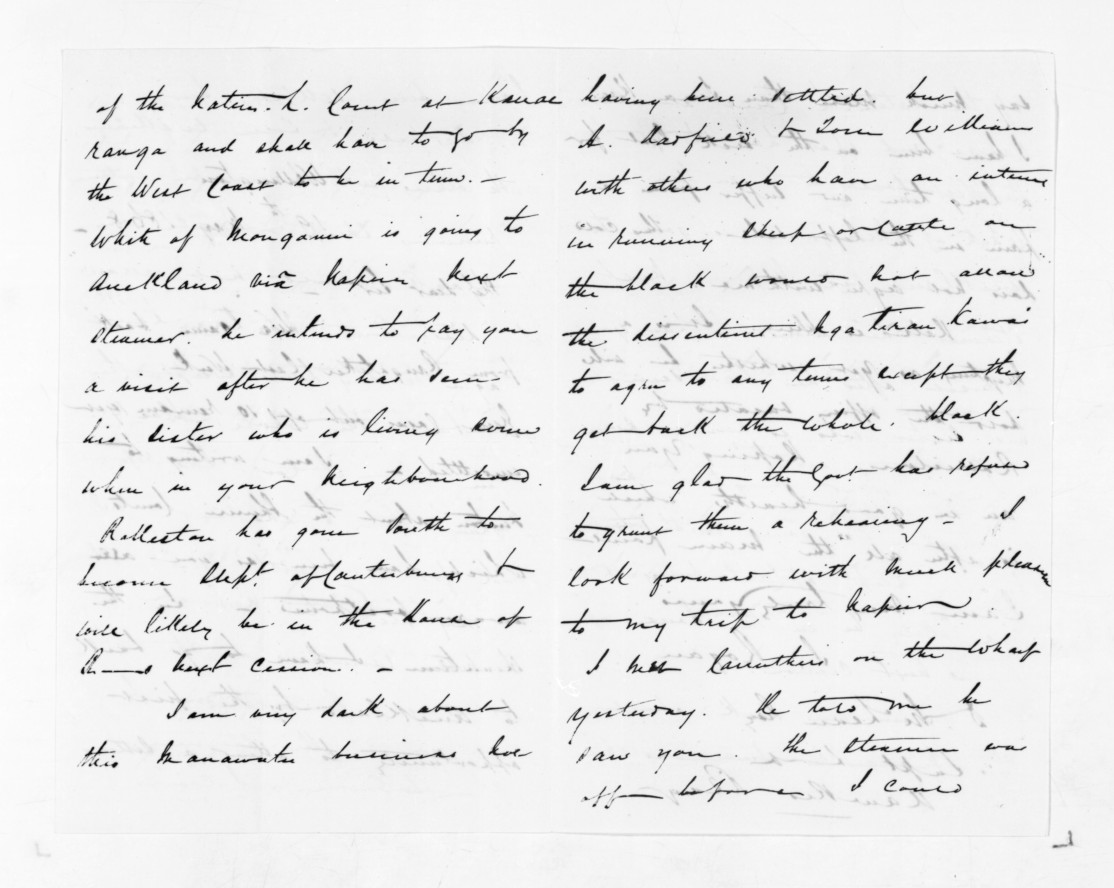 of the Native. L. Court at Kanae
ranga and shall have to go by
the West Coast to be in time. –
White of Mongonui is going to
Auckland viâ Napier next
steamer. he intends to pay you
a visit after he has seen
his sister who is living some
where in your neighbourhood.
Rolleston has gone South to
become Supt. of Canterbury &
will likely be in the House of
R——s next cession. –
I am very dark about
this Manawatu business not
having been settled. but
A. Hadfield & Tom Williams
with others who have an interest
in running sheep or cattle on
the block would not allow
the dissentient Ngatirau Kawas
to agree to any terms except they
get back the whole. block.
I am glad the Govt has refused
to grant them a rehearing – I
look forward with much pleasure
to my trip to Napier.
I met Carruthers on the Wharf
yesterday. He told me he
saw you. The steamer was
off before I could